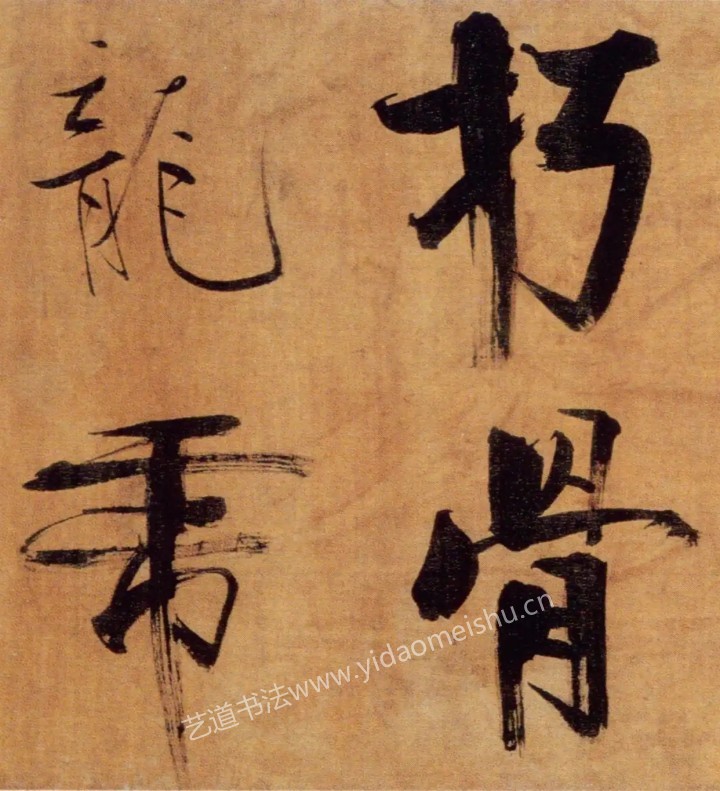 朽骨
龍虎
艺道书法www.yidaomeishu.cn